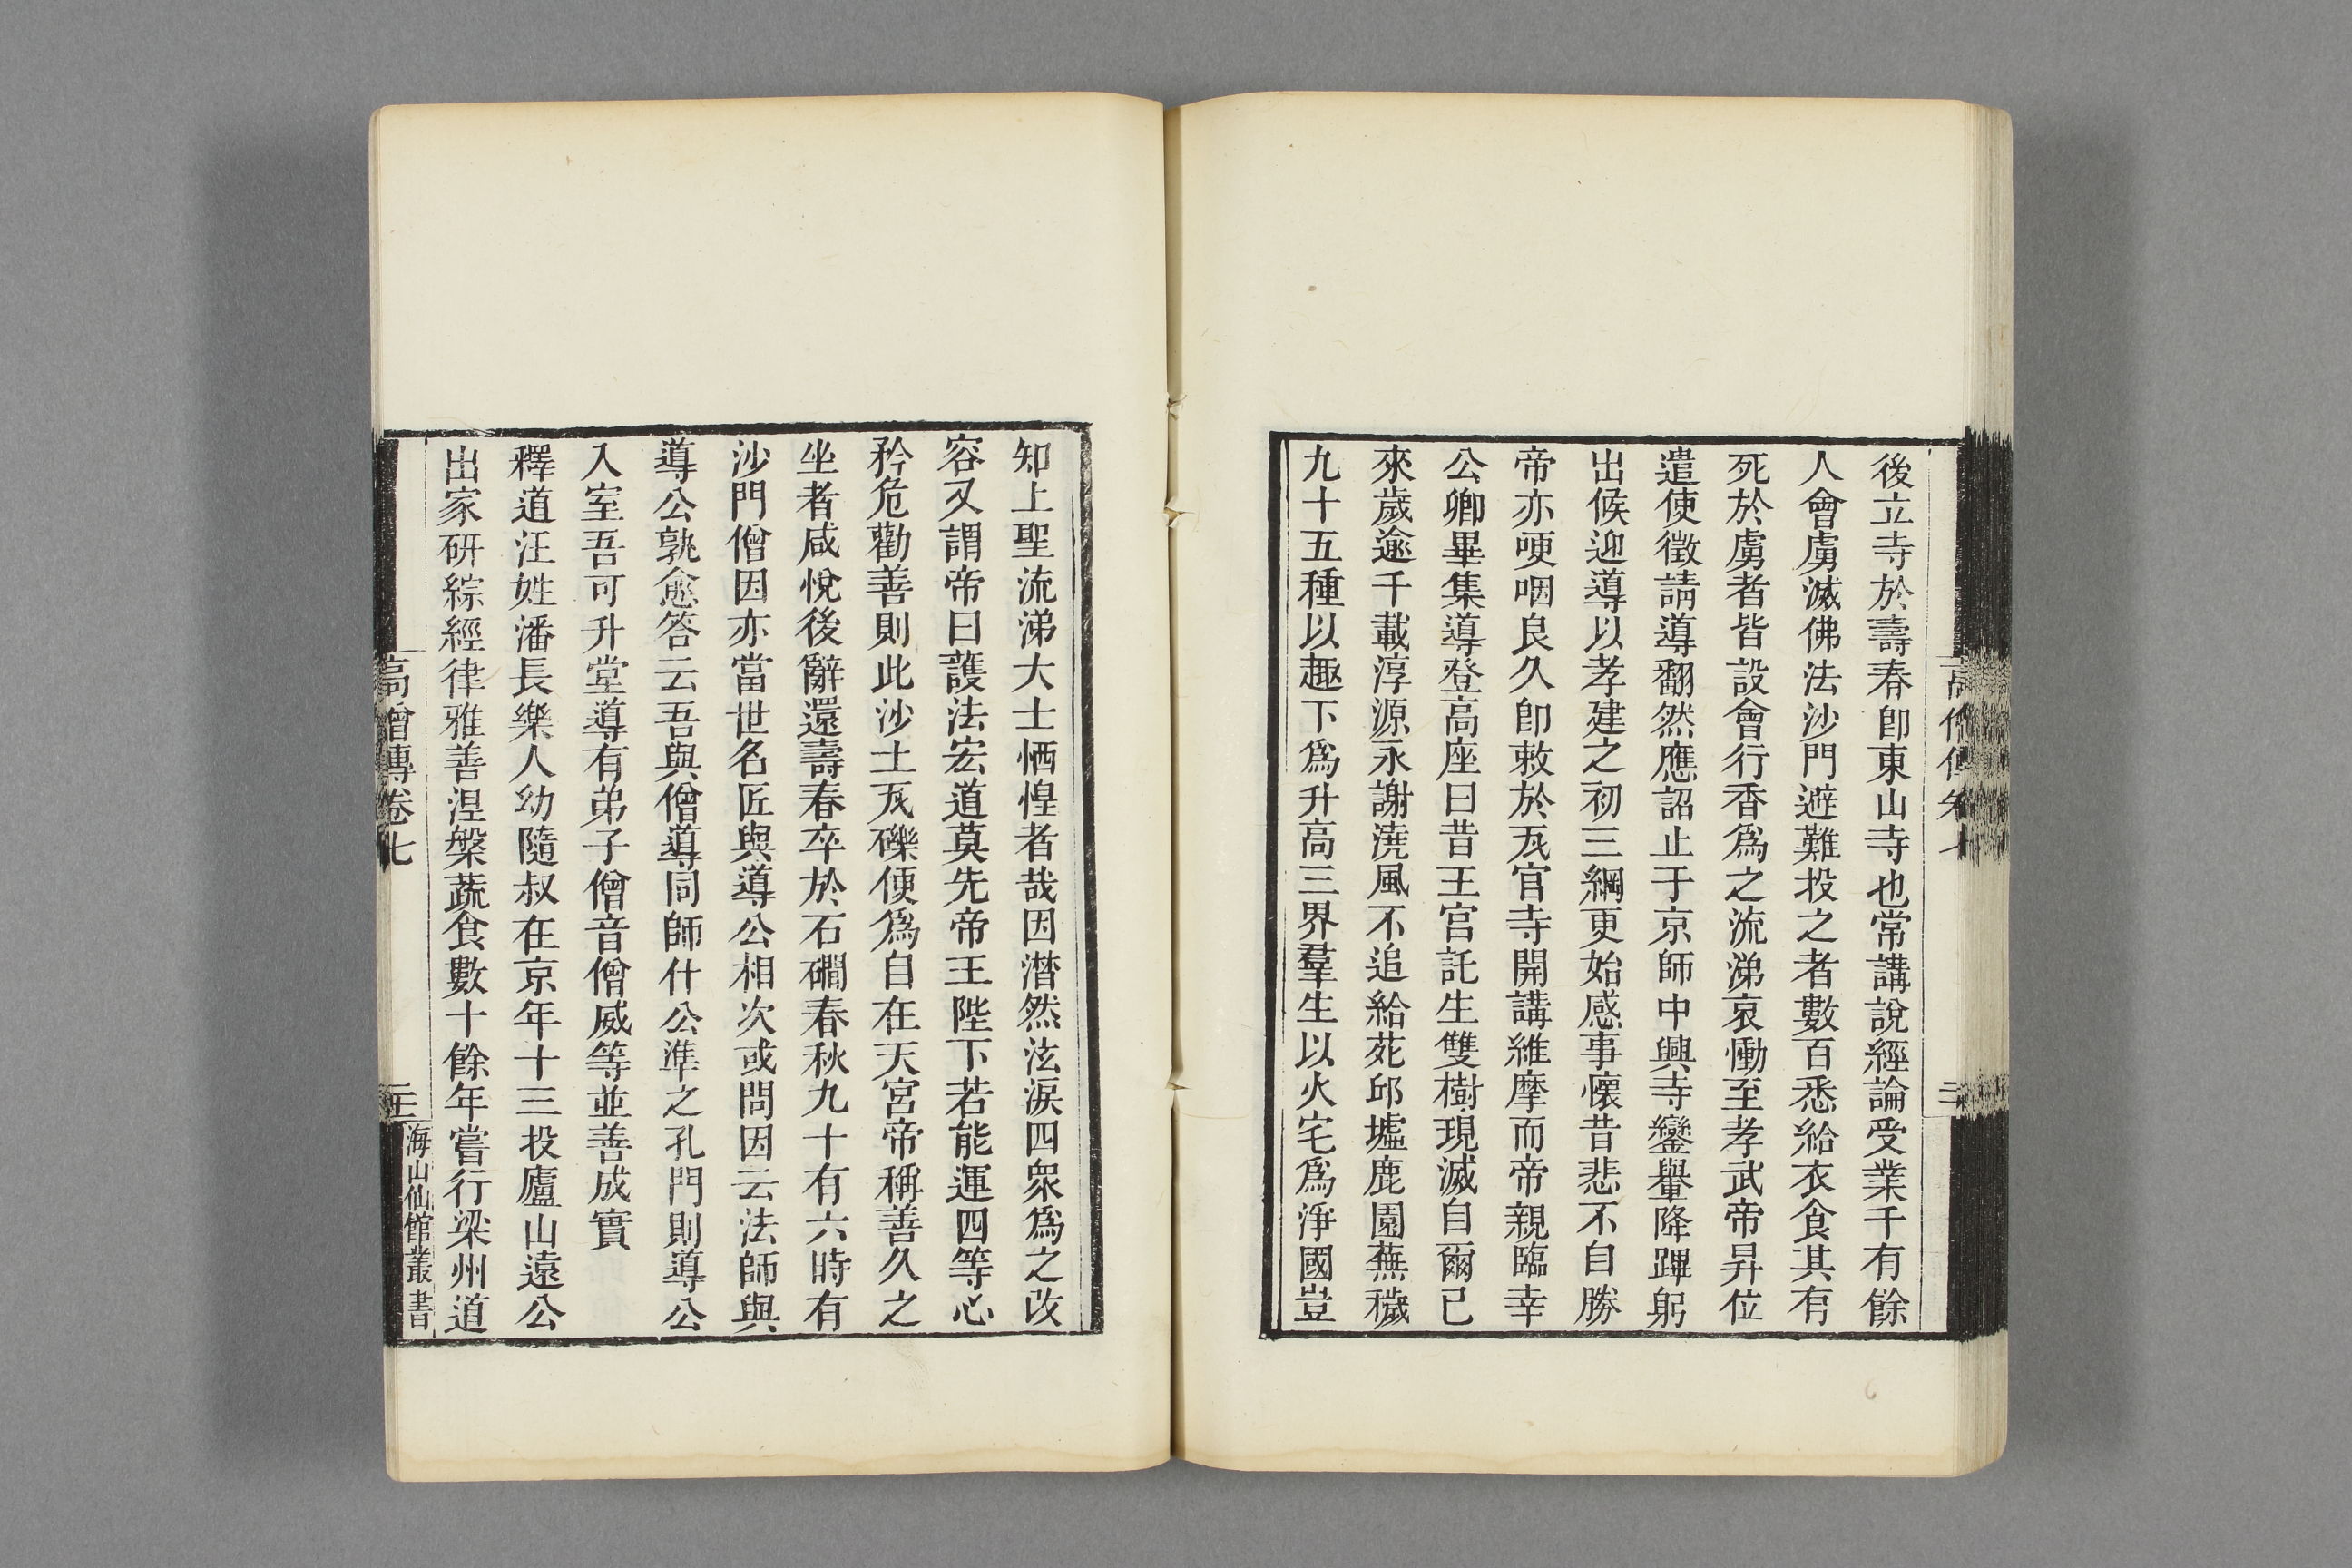 後立寺於壽春卽東山寺也常講說經論受業千有餘
人會虜滅佛法沙門避難投之者數百悉給衣食其有
死於虜者皆設會行香爲之流涕哀慟至孝武帝昇位
遣使徵請導翻然應詔止于京師中興寺鑾轝降蹕躬
出候迎導以孝建之初三綱更始感事懷昔悲不自勝
帝亦哽咽良久卽敕於瓦官寺開講維摩而帝親臨幸
公卿畢集導登高座曰昔王宮託生雙樹現滅自爾已
來歲逾千載淳源永謝澆風不追給苑邱墟鹿園蕪穢
九十五種以趣下爲升高三界羣生以火宅爲淨國豈
知上聖流涕大士恓惶者哉因潸然泫淚四衆爲之改
容又謂帝曰護法宏道莫先帝王陛下若能運四等心
矜危勸善則此沙土瓦礫便爲自在天宮帝稱善久之
坐者咸悅後辭還壽春卒於石磵春秋九十有六時有
沙門僧因亦當世名匠與導公相次或問因云法師與
導公孰愈答云吾與僧導同師什公準之孔門則導公
入室吾可升堂導有弟子僧音僧威等並善成實
釋道汪姓潘長樂人幼隨叔在京年十三投廬山遠公
出家研綜經律雅善涅槃蔬食數十餘年嘗行梁州道
高僧傳卷七
三
海山仙館叢書